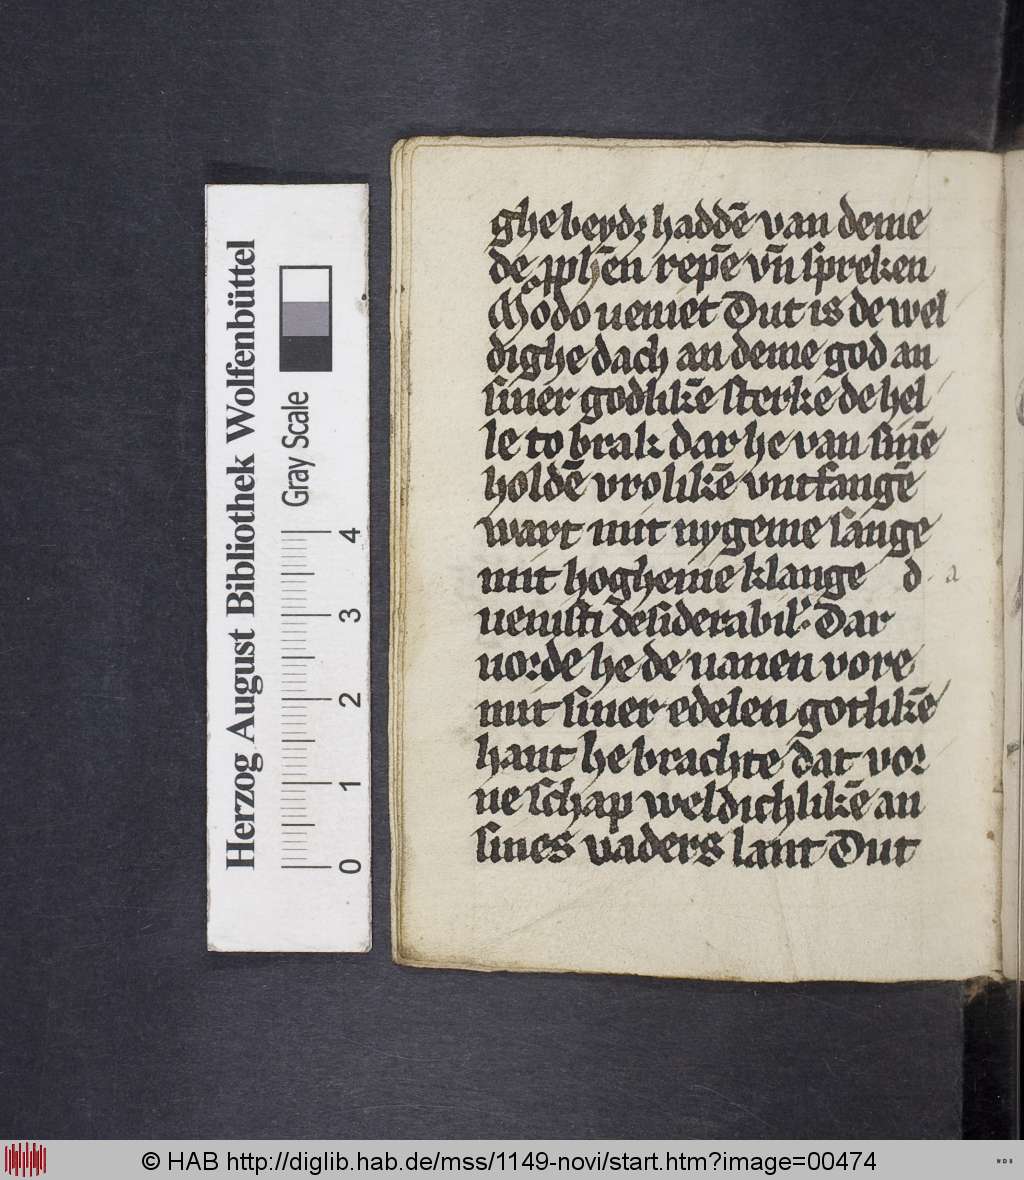 ghebeydꝫ haddē van deme
de ꝓphēn repē vn̄ spreken
Modo ueniet Dut is de wel
dighe dach an deme god an
siner godlikē sterke de hel
le to brak dar he van sinē
holdē vrolikē vntfangē
wart mit nygeme sange
mit hogheme klange d a
uenisti desiderabil' Dar
uorde he de uanen vore
mit siner edelen gotlikē
hant he brachte dat vor
ue schap weldichlikē an
sines vaders lant Dut
Herzog August Bibliothek Wolfenbüttel
Gray Scale
0 1 2 3 4
© HAB http://diglib.hab.de/mss/1149-novi/start.htm?image=00474